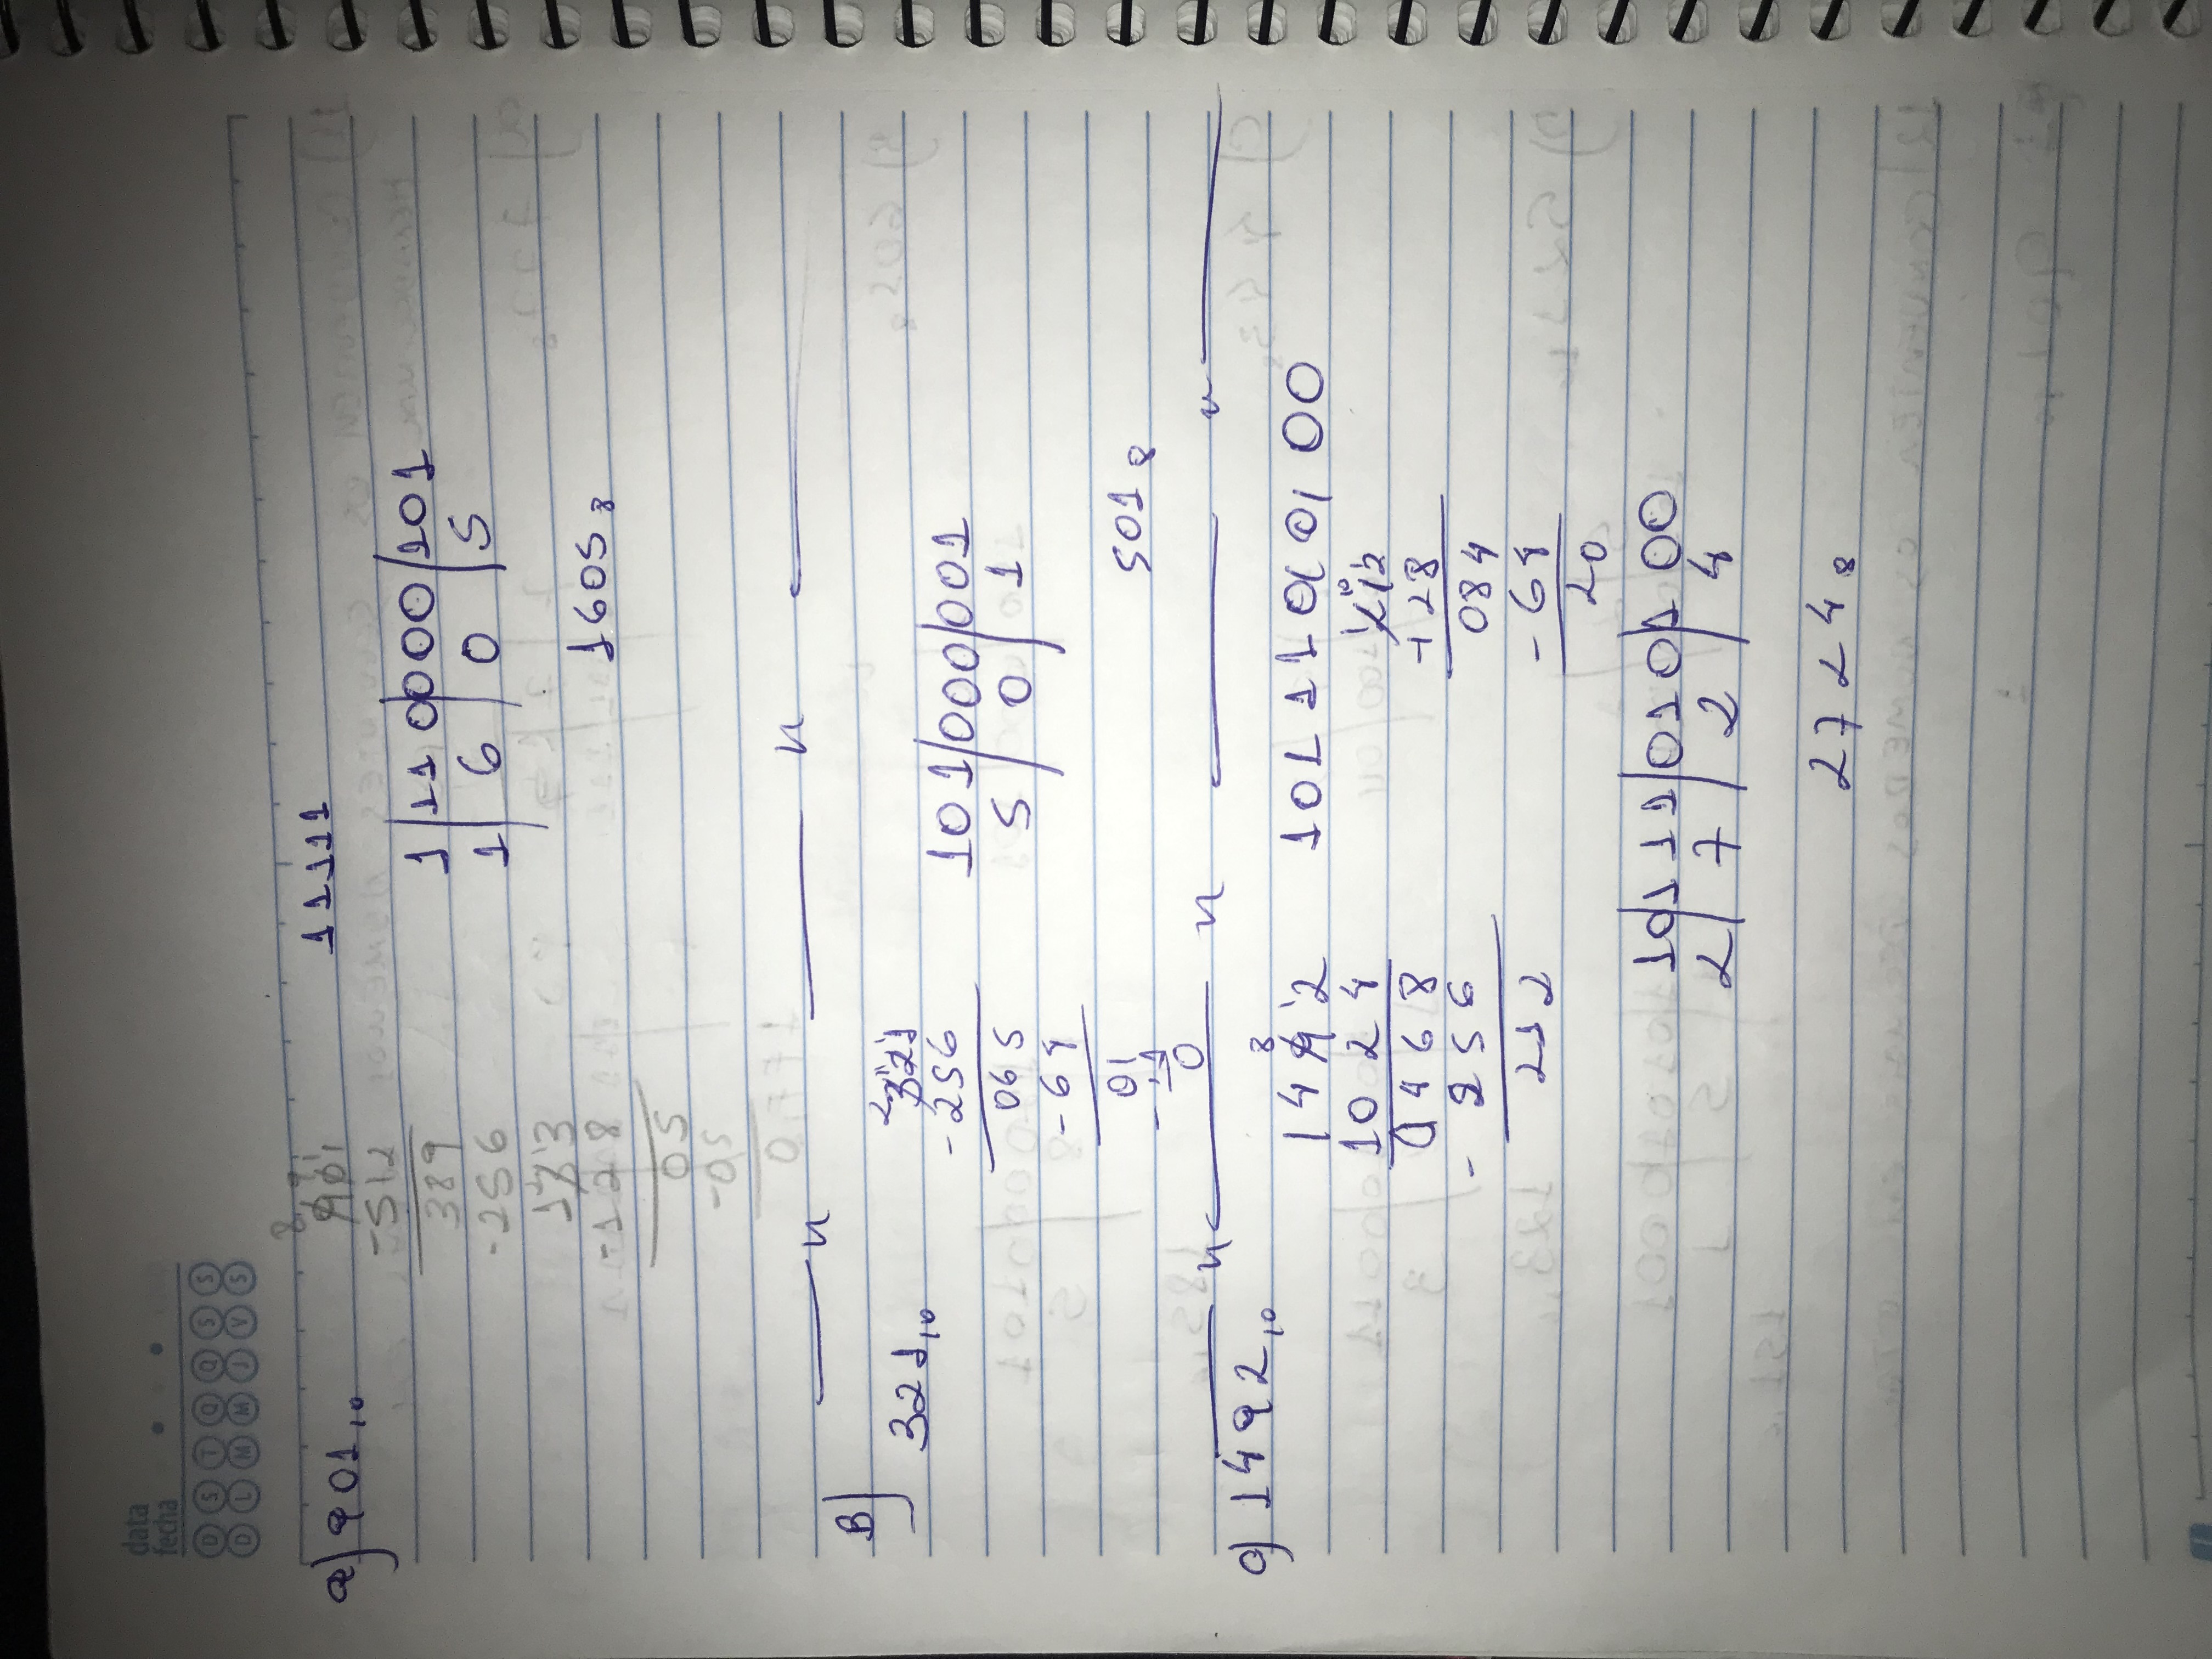 data
fecha
D S T Q Q S S
D L M M J V S
a) 901,10
8 9 1
901
-512
389
-256
133
-128
05
-05
0
11111
1 | 110 | 000 | 101
1 | 6 | 0 | 5
1605 8
B)
321,10
321
-256
065
-64
01
-1
0
101/000/001
5 / 0 / 1
501 8
c) 1492,10
8
1492
1024
0468
- 256
212
10111010100
212
-128
084
-64
20
10|111|010|100
2 | 7 | 2 | 4
2724 8